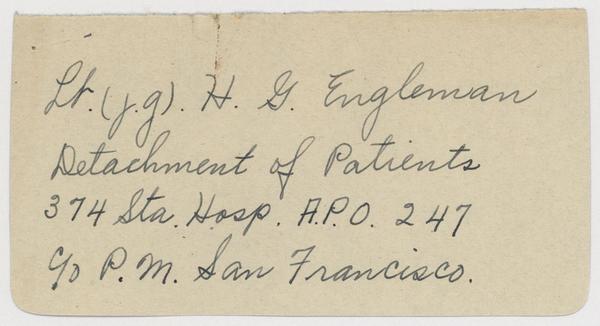 Lt. (j.g). H. G. Engleman
Detachment of Patients
374 Sta. Hosp. A.P.O. 247
c/o P.M. San Francisco.